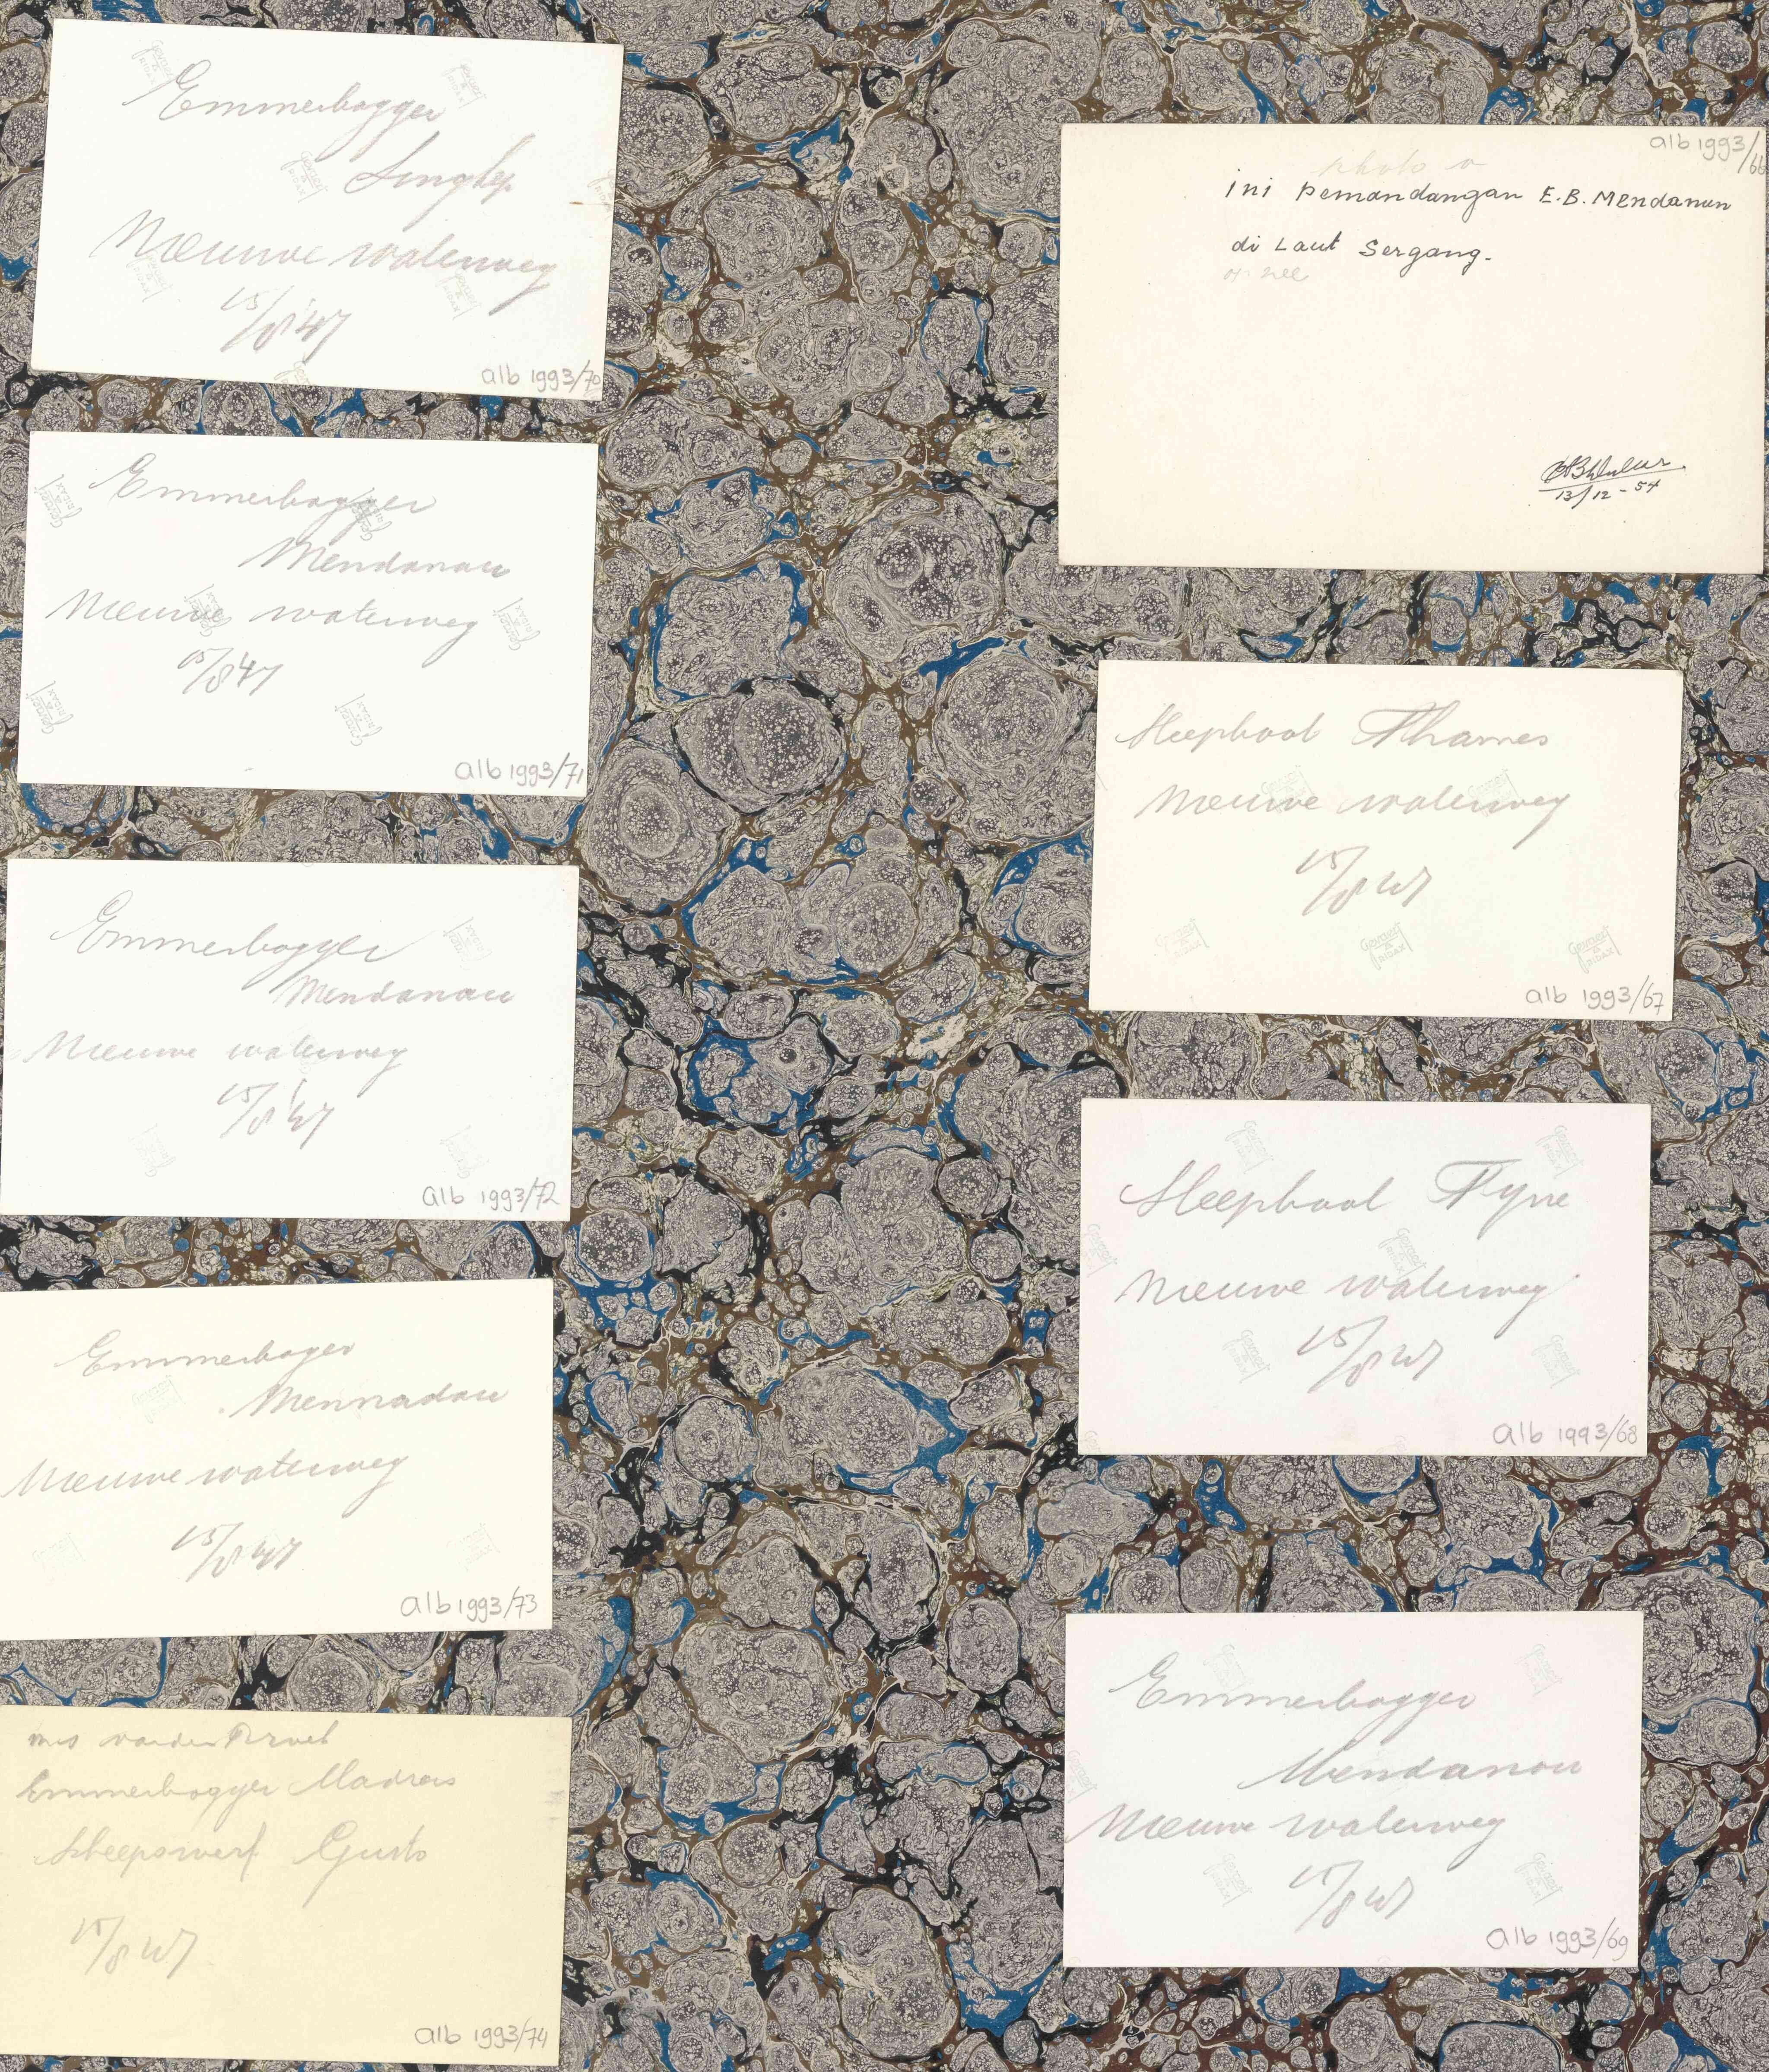 Emmerbagger
Singkep
Nieuwe waterweg
15/8 '47
alb 1993/70
Emmerbagger
Mendanau
Nieuwe waterweg
15/8 47
alb 1993/71
Emmerbagger
Mendanau
Nieuwe waterweg
15/8 '47
alb 1993/72
Emmerbager
Mennadau
Nieuwe waterweg
15/8 47
alb 1993/73
Emmerbagger Madras
Scheepswerf Gusto
15/8 47
alb 1993/74
alb 1993/66
photo
ini pemandangan E.B. Mendanau
di Laut Sergang.
op zee
13/12-54
Sleepboot Thames
Nieuwe waterweg
15/8 47
Gevaert
RIDAX
alb 1993/67
Sleepboot Tyne
Nieuwe waterweg
15/8 47
alb 1993/68
Emmerbagger
Mendanau
Nieuwe waterweg
15/8 47
alb 1993/69